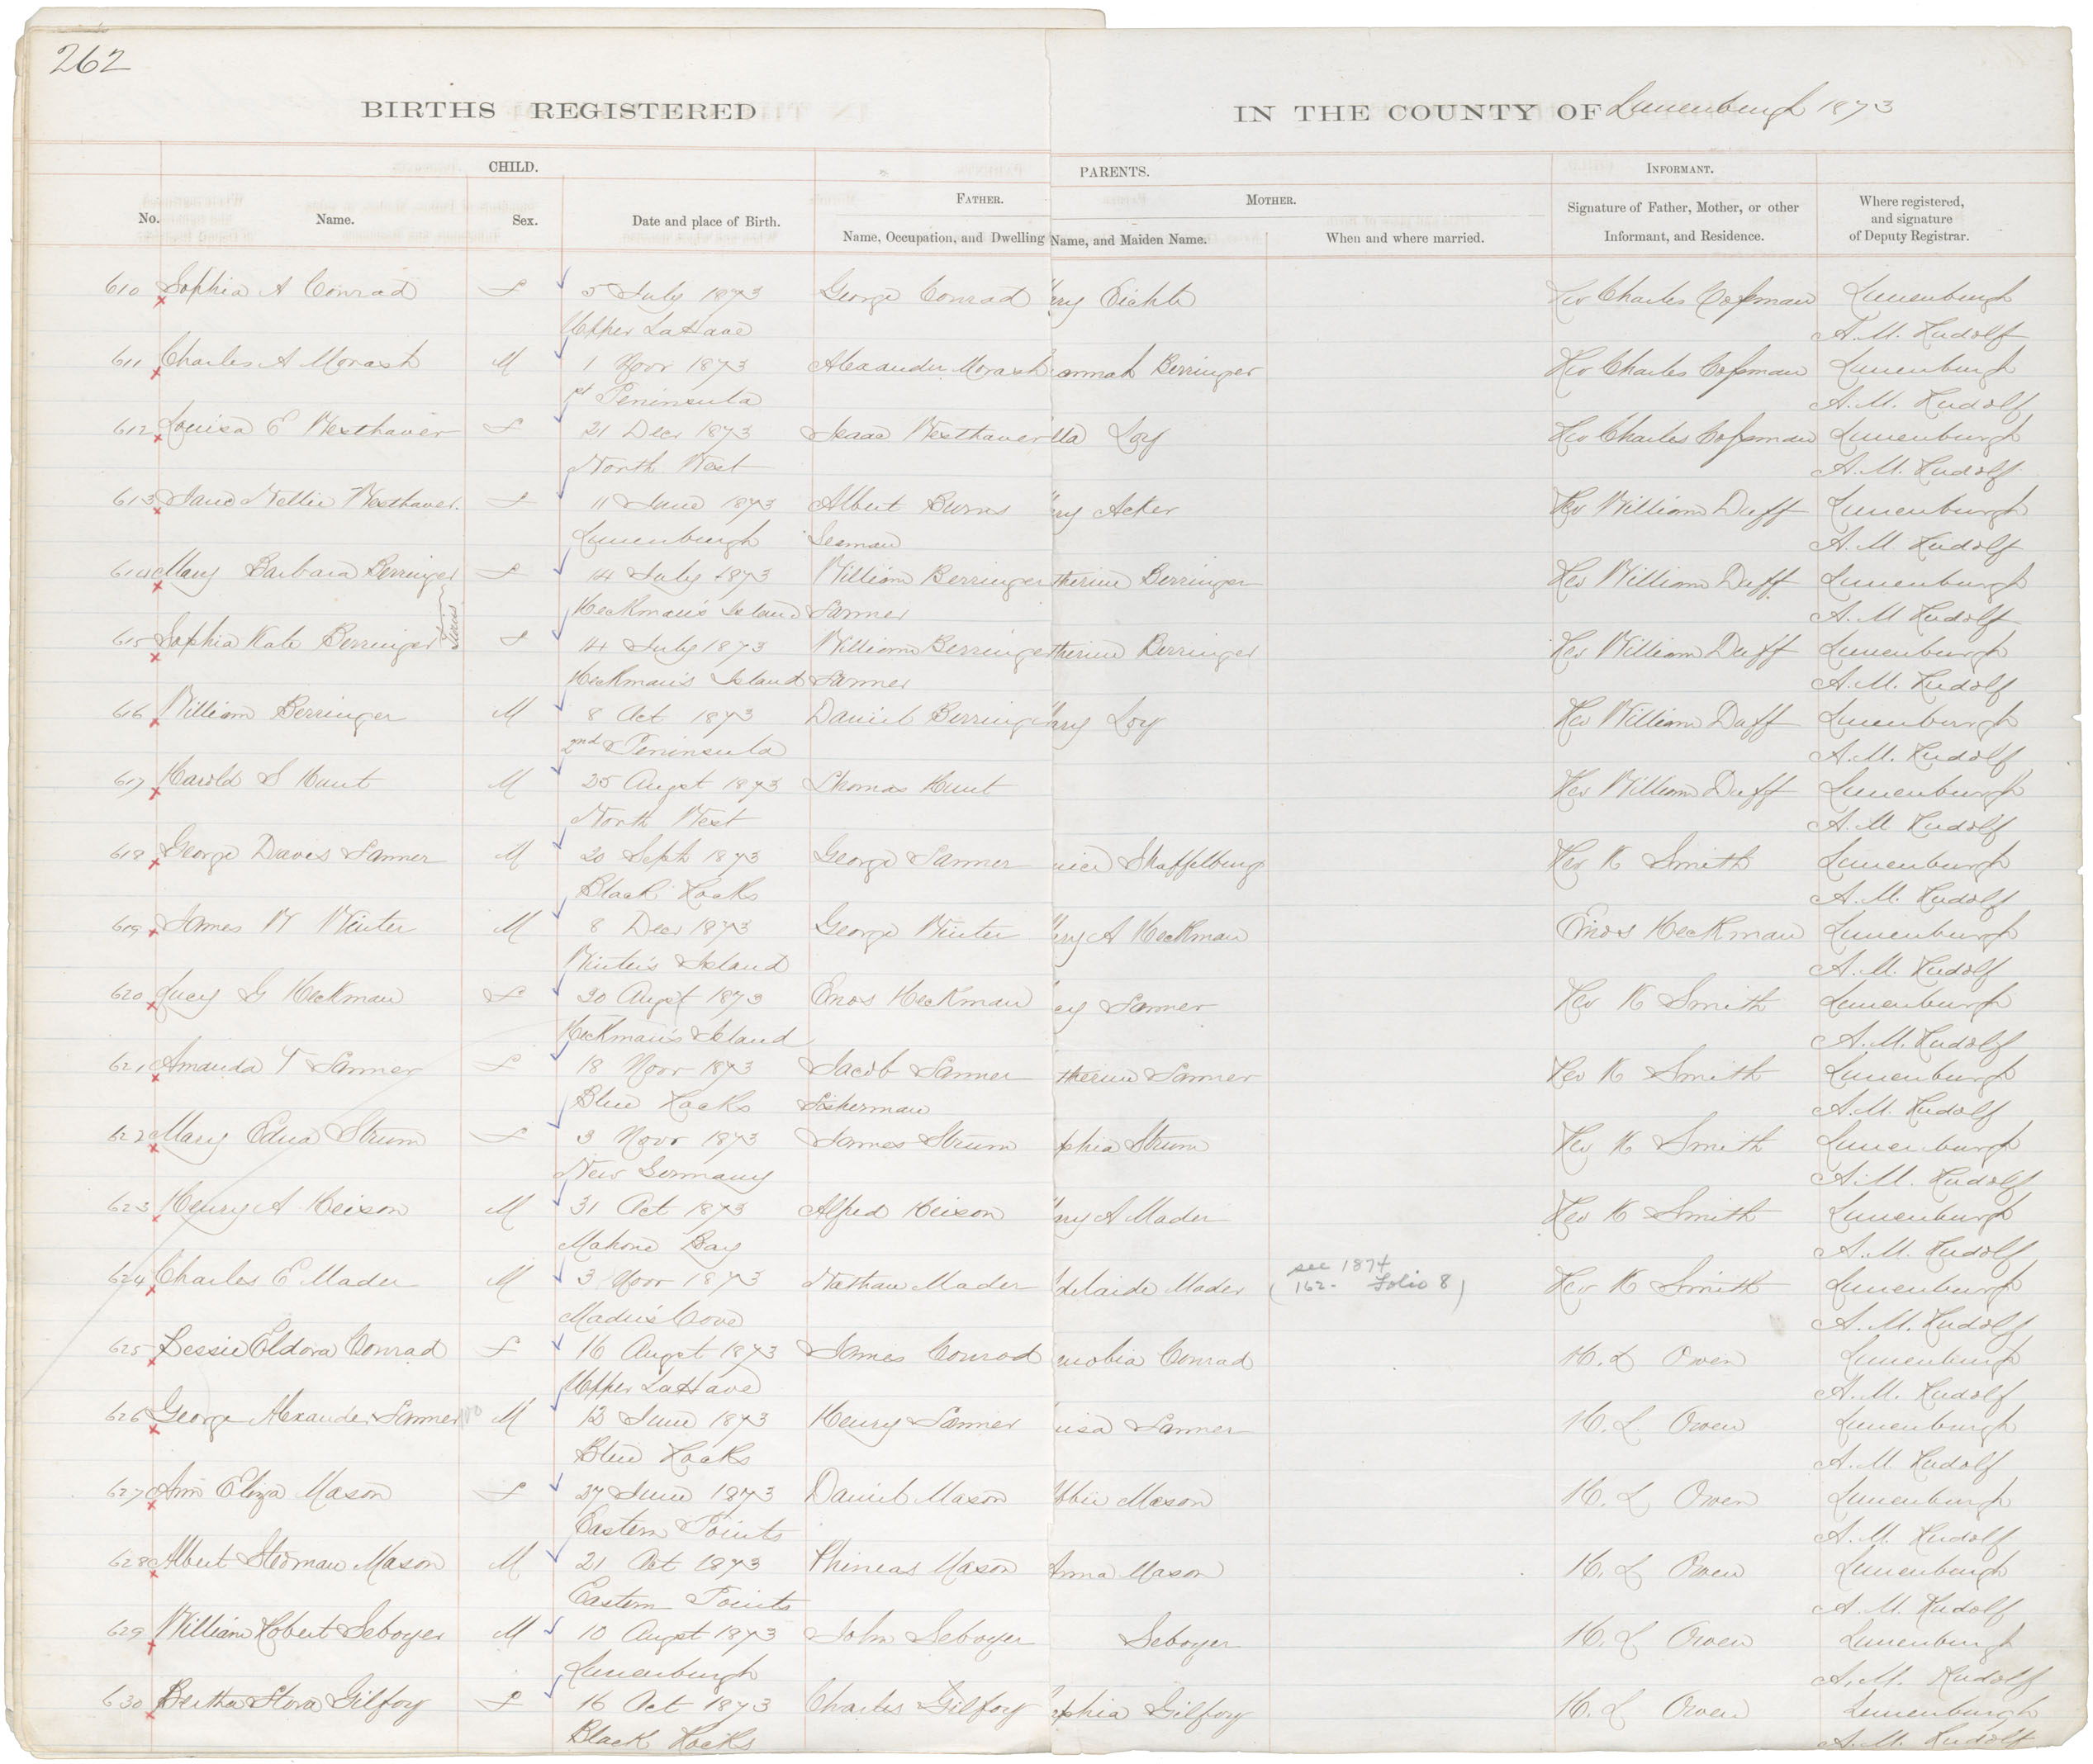 262
BIRTHS REGISTERED IN THE COUNTY OF Lunenburgh 1873
CHILD. PARENTS. INFORMANT.
FATHER. MOTHER.
No. Name. Sex. Date and place of Birth. Name, Occupation, and Dwelling Name, and Maiden Name. When and where married. Signature of Father, Mother, or other Informant, and Residence. Where registered, and signature of Deputy Registrar.
610 Sophia A Conrad F 5 July 1873 George Conrad ary Eichte Rev Charles Cossman Lunenburgh
Upper LaHave A. M. Rudolf
611 Charles A Morash M 1 Novr 1873 Alexander Morash annah Berringer Rev Charles Cossman Lunenburgh
1st Peninsula A. M. Rudolf
612 Louisa E Westhaver F 21 Decr 1873 Isaac Westhaver lla Loy Rev Charles Cossman Lunenburgh
North West A. M. Rudolf
613 Jane Nellie Westhaver. F 11 June 1873 Albert Burns ary Acker Rev William Duff Lunenburgh
Lunenburgh Seaman A. M. Rudolf
614 Mary Barbara Berringer F 14 July 1873 William Berringer therine Berringer Rev William Duff Lunenburgh
Twins
Heckman's Island Farmer A. M Rudolf
615 Sophia Kate Berringer F 14 July 1873 William Berringer therine Berringer Rev William Duff Lunenburgh
Heckman's Island Farmer A. M. Rudolf
616 William Berringer M 8 Oct 1873 Daniel Berringe ary Loy Rev William Duff Lunenburgh
2nd Peninsula A. M. Rudolf
617 Harold S Hunt M 25 Augst 1873 Thomas Hunt Rev William Duff Lunenburgh
North West A. M Rudolf
618 George Davis Tanner M 20 Sept 1873 George Tanner nice Shaffelburg Rev K Smith Lunenburgh
Black Rocks A. M. Rudolf
619 James W Winter M 8 Decr 1873 George Winter ary A Heckman Enos Heckman Lunenburgh
Winter's Island A. M. Rudolf
620 Lucy G Heckman F 30 Augst 1873 Enos Heckman cy Tanner Rev K Smith Lunenburgh
Heckman's Island A. M. Rudolf
621 Amanda T Tanner F 18 Novr 1873 Jacob Tanner therine Tanner Rev K Smith Lunenburgh
Blue Rocks Fisherman A. M. Rudolf
622 Mary Edna Strum F 3 Novr 1873 James Strum phia Strum Rev K Smith Lunenburgh
New Germany A. M. Rudolf
623 Henry A Heison M 31 Oct 1873 Alfred Heison ary A Mader Rev K Smith Lunenburgh
Mahone Bay A. M. Rudolf
see 1874
624 Charles E Mader M 3 Novr 1873 Nathan Mader delaide Mader (162- Folio 8) Rev K Smith Lunenburgh
Mader's Cove A. M. Rudolf
625 Bessie Eldora Conrad F 16 Augst 1873 James Conrad enobia Conrad H. L Owen Lunenburgh
Upper LaHave A. M. Rudolf
626 George Alexander Tanner M 12 June 1873 Henry Tanner uisa Tanner H. L. Owen Lunenburgh
Blue Rocks A. M. Rudolf
627 Ann Eliza Mason F 27 June 1873 Daniel Mason bbie Mason H. L Owen Lunenburgh
Eastern Points A. M. Rudolf
628 Albert Stedman Mason M 21 Oct 1873 Phineas Mason Anna Mason H. L Owen Lunenburgh
Eastern Points A. M. Rudolf
629 William Robert Seboyer M 10 Augst 1873 John Seboyer Seboyer H. L Owen Lunenburgh
Lunenburgh A. M. Rudolf
630 Bertha Flora Gilfoy F 16 Oct 1873 Charles Gilfoy phia Gilfoy H. L Owen Lunenburgh
Black Rocks A. M. Rudolf